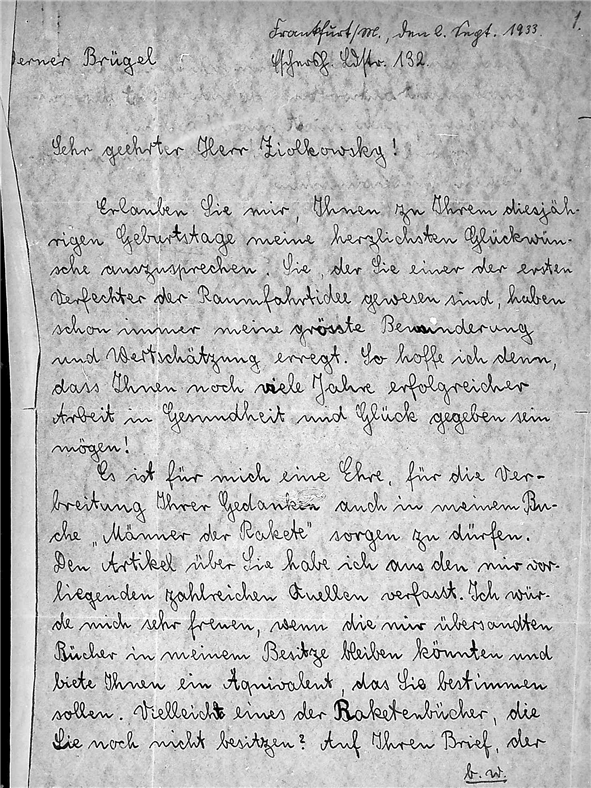 1.
Frankfurt/M., den 2. Sept. 1933
Werner Brügel
Eschersh. Ldstr. 132.
Sehr geehrter Herr Ziolkowsky!
Erlauben Sie mir, Ihnen zu Ihrem diesjäh-
rigen Geburtstage meine herzlichsten Glückwün-
sche auszusprechen. Sie, der Sie einer der ersten
Verfechter der Raumfahrtidee gewesen sind, haben
schon immer meine grösste Bewunderung
und Wertschätzung erregt. So hoffe ich denn,
dass Ihnen noch viele Jahre erfolgreicher
Arbeit in Gesundheit und Glück gegeben sein
mögen!
Es ist für mich eine Ehre, für die Ver-
breitung Ihrer Gedanken auch in meinem Bu-
che „Männer der Rakete" sorgen zu dürfen.
Den Artikel über Sie habe ich aus den mir vor-
liegenden zahlreichen Quellen verfasst. Ich wür-
de mich sehr freuen, wenn die mir übersandten
Bücher in meinem Besitze bleiben könnten und
biete Ihnen ein Äquivalent, das Sie bestimmen
sollen. Vielleicht eines der Raketenbücher, die
Sie noch nicht besitzen? Auf Ihren Brief, der
b. w.